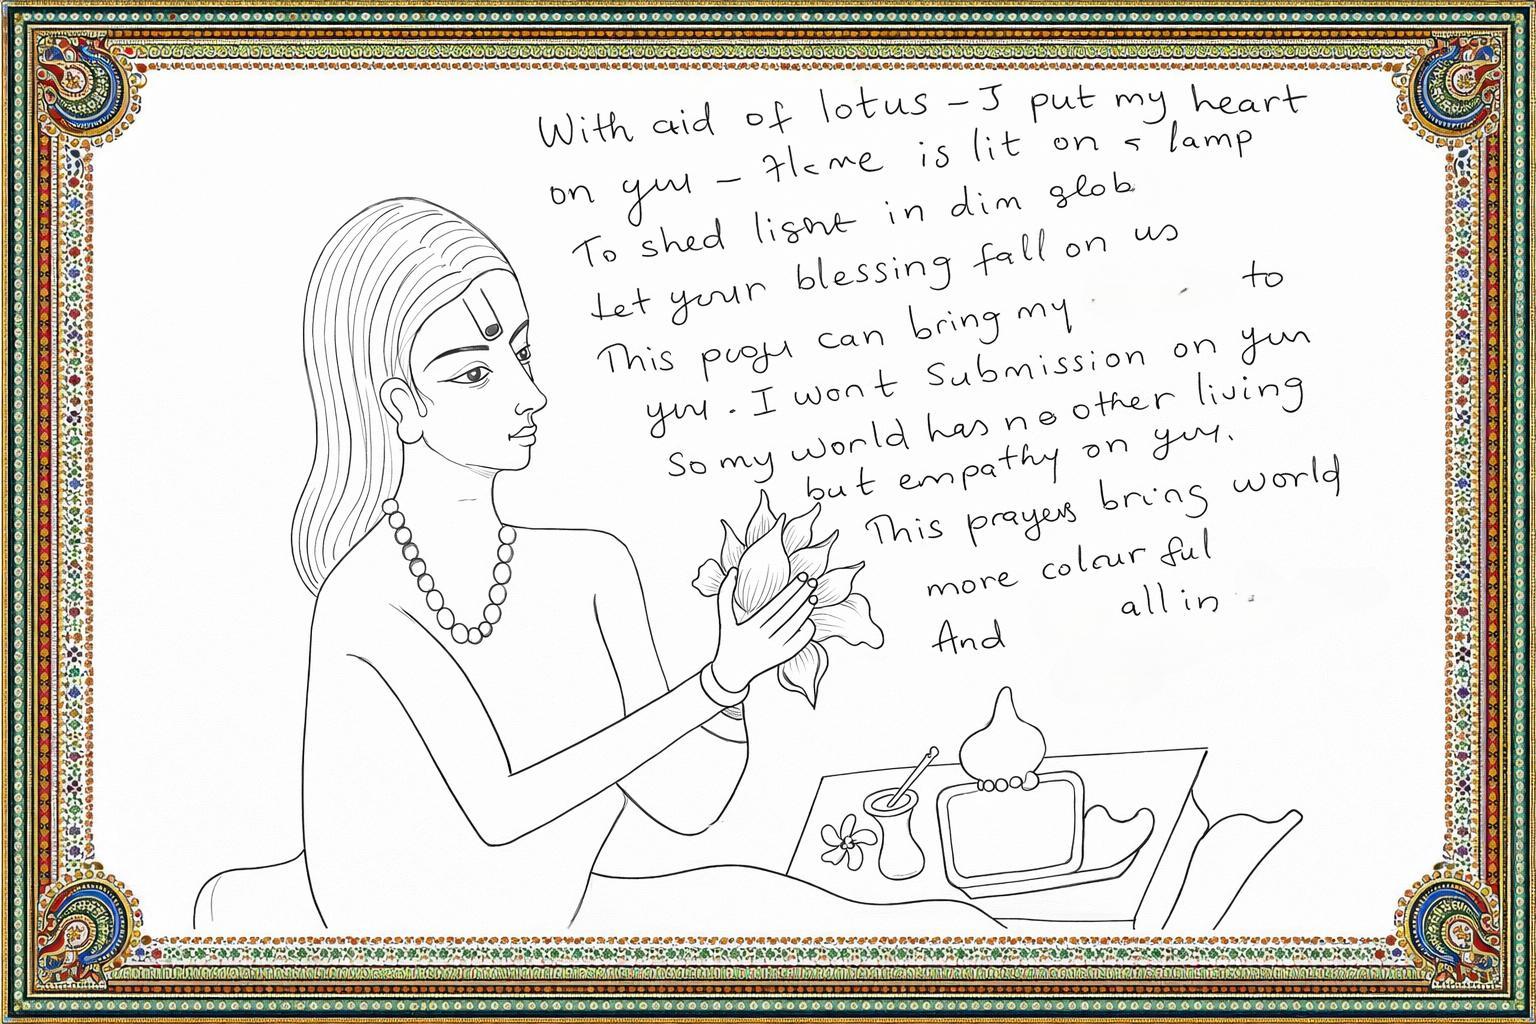 With aid of lotus – I put my heart
on you – Flame is lit on a lamp
To shed light in dim glob
Let your blessing fall on us
This pooja can bring my to
you . I wont Submission on you
So my world has no other living
but empathy on you.
This prayers bring world
more colour ful
And all in